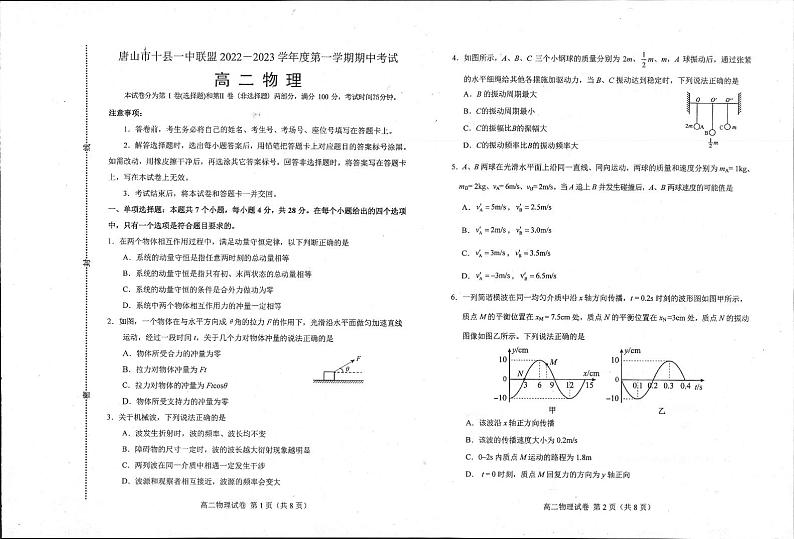 唐山市十县一中联盟 2022－2023 学年度第一学期期中考试
高 二 物 理
本试卷分为第 I 卷(选择题)和第II 卷 (非选择题) 两部分，满分 100 分，考试时间75分钟。
注意事项：
1．答卷前，考生务必将自己的姓名、考生号、考场号、座位号填写在答题卡上。
2．解答选择题时，选出每小题答案后，用铅笔把答题卡上对应题目的答案标号涂黑。
如需改动，用橡皮擦干净后，再选涂其它答案标号。回答非选择题时，将答案写在答题卡
上，写在本试卷上无效。
3．考试结束后，将本试卷和答题卡一并交回。
一、单项选择题：本题共 7 个小题，每小题 4 分，共 28 分。在每个小题给出的四个选项
中，只有一个选项是符合题目要求的。
1．在两个物体相互作用过程中，满足动量守恒定律，以下判断正确的是
A．系统的动量守恒是指任意两时刻的总动量相等
B．系统的动量守恒是指只有初、末两状态的总动量相等
C．系统的动量守恒的条件是合外力做功为零
D．系统中两个物体相互作用力的冲量一定相等
2．如图，一个物体在与水平方向成 θ 角的拉力 F 的作用下，光滑沿水平面做匀加速直线
运动，经过一段时间 t，关于几个力对物体冲量的说法正确的是
A．物体所受合力的冲量为零
B．拉力对物体冲量为 Ft
C．拉力对物体的冲量为 Ftcosθ
D．物体所受支持力的冲量为零
F
θ
3．关于机械波，下列说法正确的是
A．波发生折射时，波的频率、波长均不变
B．障碍物的尺寸一定时，波的波长越大衍射现象越明显
C．两列波在同一介质中相遇一定发生干涉
D．波源和观察者相互接近，波源的频率会变大
高二物理试卷 第 1 页（共 8 页）
线
封
密
4．如图所示，A、B、C 三个小钢球的质量分别为 2m、1/2 m、m，A 球振动后，通过张紧
的水平细绳给其他各摆施加驱动力，当 B、C 振动达到稳定时，下列说法正确的是
A．B 的振动周期最大
B．C的振动周期最小
C．C的振幅比B的振幅大
D．C的振动频率比B的振动频率大
O O′ O″
2m A
B
C m
1/2 m
5．A、B 两球在光滑水平面上沿同一直线、同向运动，两球的质量和速度分别为 mA= 1kg、
mB= 2kg、vA= 6m/s、vB= 2m/s，当 A 追上 B 并发生碰撞后，A、B 两球速度的可能值是
A．v′A = 5m/s，v′B = 2.5m/s
B．v′A = 2m/s，v′B = 3.0m/s
C．v′A = 3m/s，v′B = 3.5m/s
D．v′A = –3m/s，v′B = 6.5m/s
6．一列简谐横波在同一均匀介质中沿 x 轴方向传播，t = 0.2s 时刻的波形图如图甲所示，
质点 M 的平衡位置在 xM = 7.5cm 处，质点 N 的平衡位置在 xN =3cm 处，质点 N 的振动
图像如图乙所示。下列说法正确的是
y/cm
10
0
-10
N M
3 6 9 12 15
x/cm
甲
y/cm
10
0
-10
0.1 0.2 0.3 0.4 t/s
乙
A．该波沿 x 轴正方向传播
B．该波的传播速度大小为 0.2m/s
C．0–2s 内质点 M 运动的路程为 1.8m
D． t = 0 时刻，质点 M 回复力的方向为 y 轴正向
高二物理试卷 第 2 页（共 8 页）